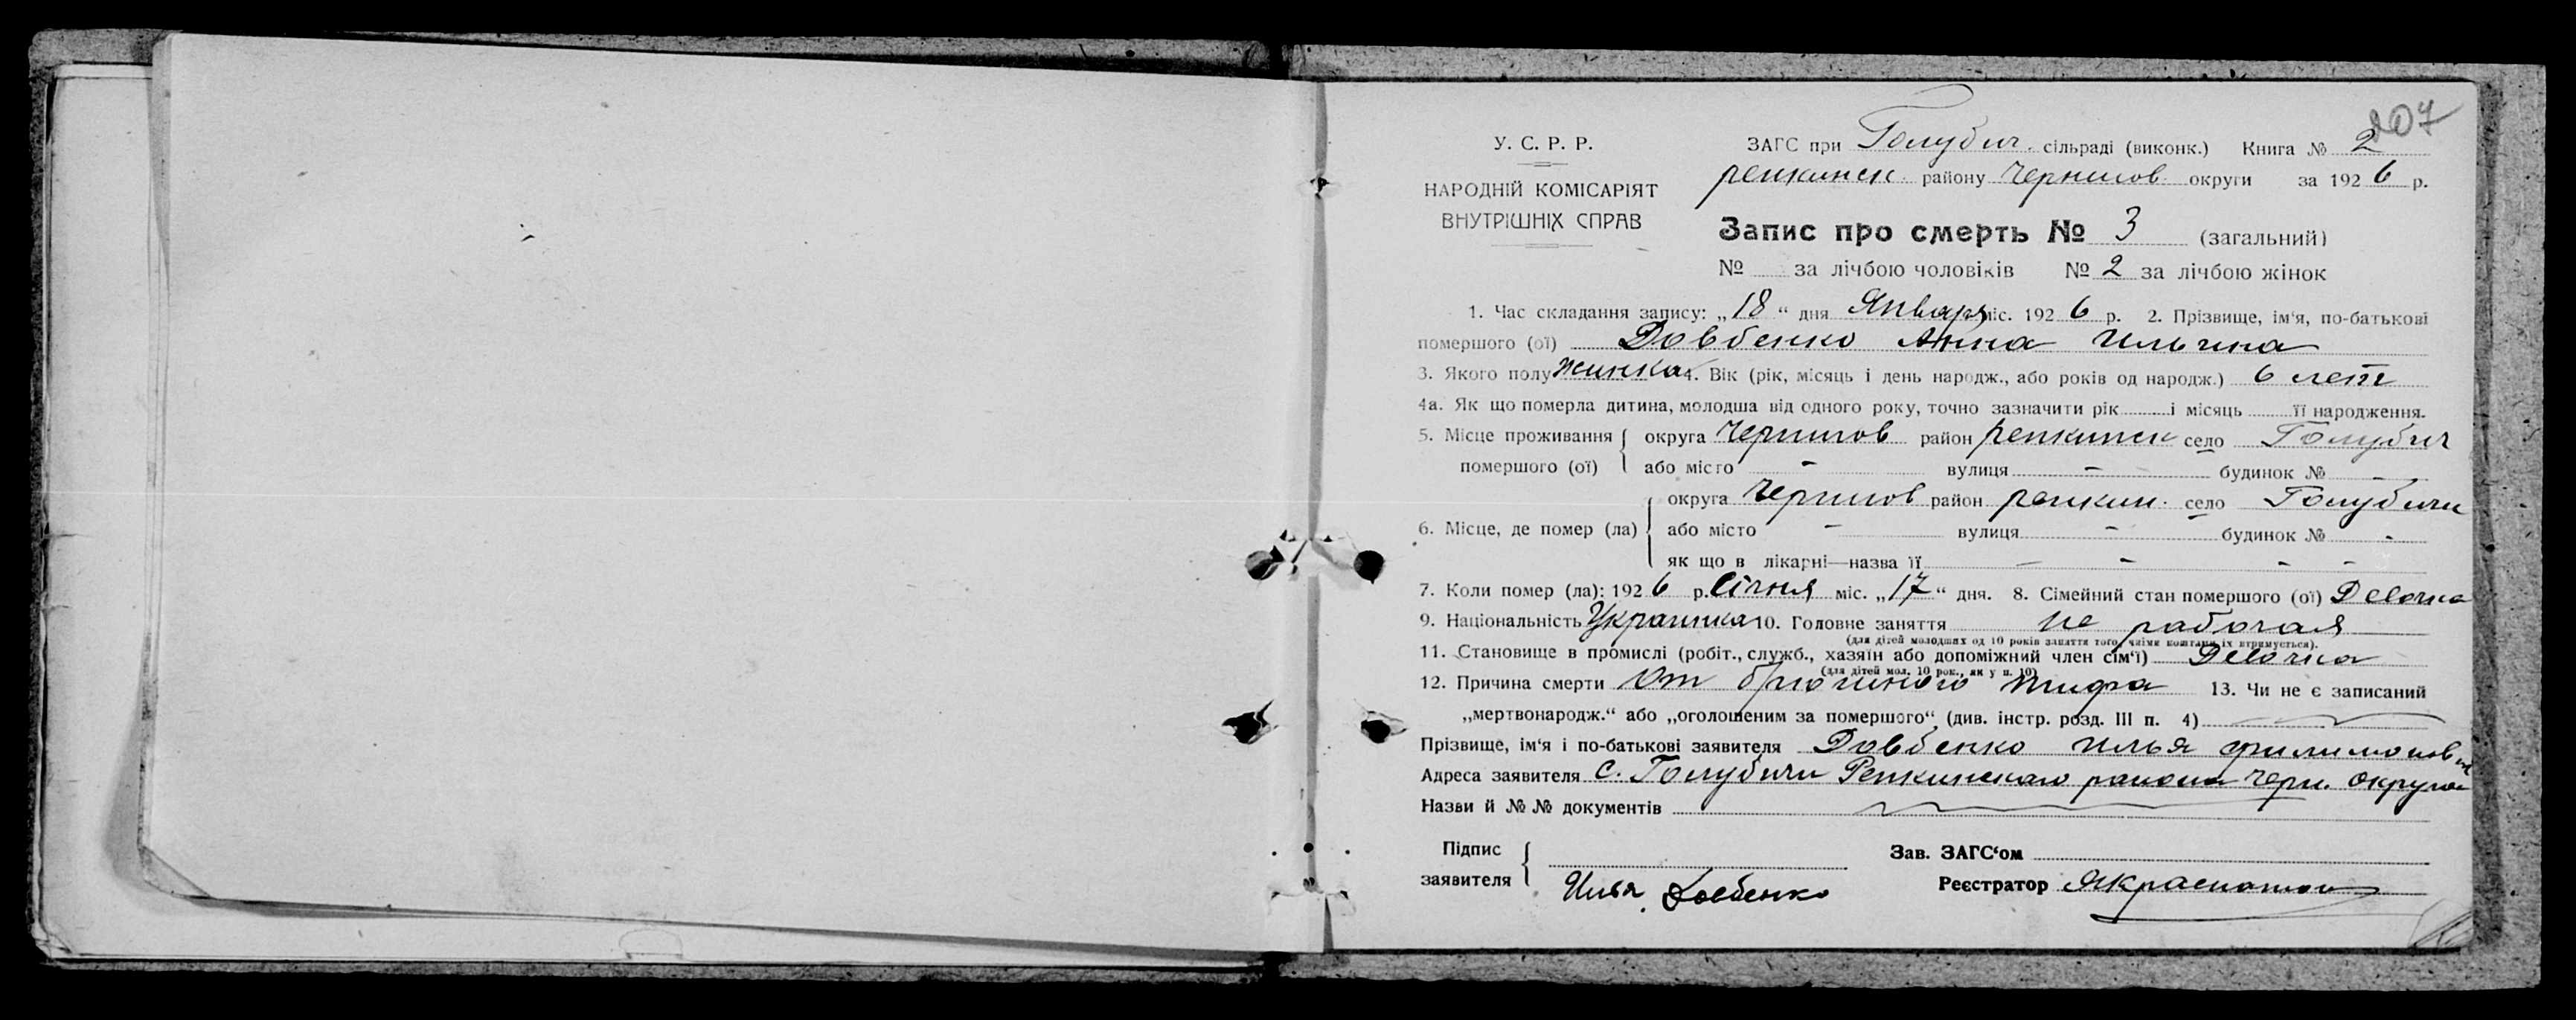 207
У. С. Р. Р.
НАРОДНІЙ КОМІСАРІЯТ
ВНУТРІШНІХ СПРАВ
ЗАГС при Голубич. сільраді (виконк.) Книга № 2
репкинск. району Чернигов. округи за 1926 р.
Запис про смерть № 3 (загальний)
№ за лічбою чоловіків № 2 за лічбою жінок
1. Час складання запису: „18“ дня Января міс. 1926 р. 2. Прізвище, ім‘я, по-батькові
помершого (ої) Довбенко Анна Ильична
3. Якого полу жинка 4. Вік (рік, місяць і день народж., або років од народж.) 6 лет
4а. Як що померла дитина, молодша від одного року, точно зазначити рік і місяць її народження.
5. Місце проживання округа Чернигов район репкинск село Голубич
помершого (ої) або місто - вулиця - будинок № -
округа Чернигов район репкин. село Голубичи
6. Місце, де помер (ла) або місто - вулиця - будинок № -
як що в лікарні—назва її - - - -
7. Коли помер (ла): 1926 р. Січня міс. „17“ дня. 8. Сімейний стан помершого (ої) Девочка
9. Національність Украинка 10. Головне заняття не рабочая
(для дітей молодших од 10 років заняття того, чиїми коштами їх втримується).
11. Становище в промислі (робіт., служб., хазяїн або допоміжний член сім‘ї) Девочка
(для дітей мол. 10 рок., як у п. 10)
12. Причина смерти От брюшного тифа 13. Чи не є записаний
„мертвонародж.“ або „оголошеним за помершого“ (див. інстр. розд. III п. 4)
Прізвище, ім‘я і по-батькові заявителя Довбенко Илья филимонов
Адреса заявителя с. Голубичи Репкинскаго района Черн. округа
Назви й № № документів
Підпис
заявителя Илья Довбенко
Зав. ЗАГС‘ом
Реєстратор